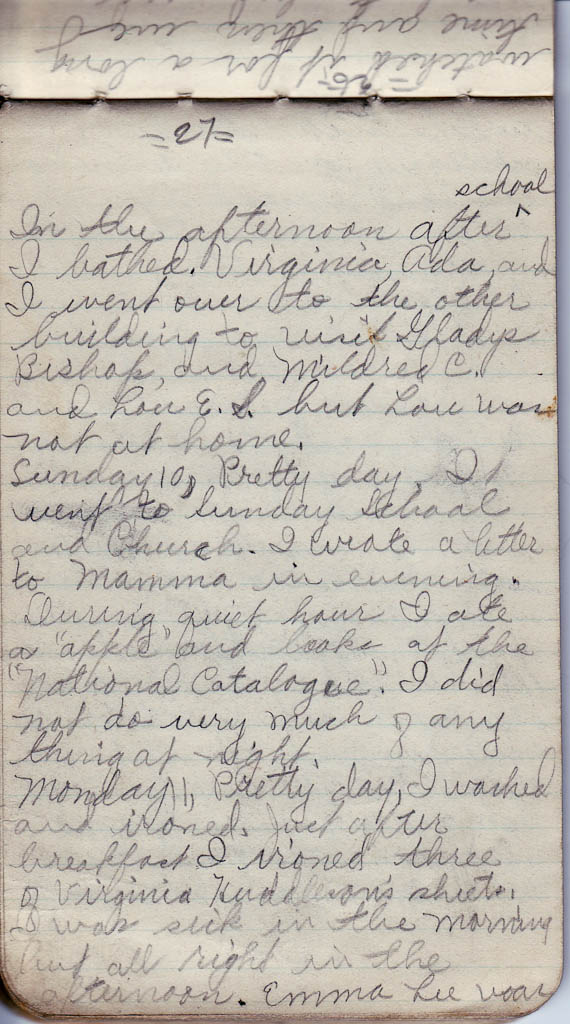 watched it for a long
time and then we
=26=
=27=
school
In the afternoon after ^
I bathed. Virginia, Ada, and
I went over to the other
building to visit Gladys
Bishop, and Mildred C.
and Lou E. S. but Lou was
not at home.
Sunday 10, Pretty day. I
went to Sunday School
and Church. I wrote a letter
to Mamma in evening.
During quiet hour I ate
a "apple" and looke at the
"National Catalogue". I did
not do very much of any
thing at night.
Monday 11, Pretty day, I washed
and ironed. Just after
breakfast I ironed three
of Virginia sheets.
I was sick in the morning
but all right in the
afternoon. Emma Lee was